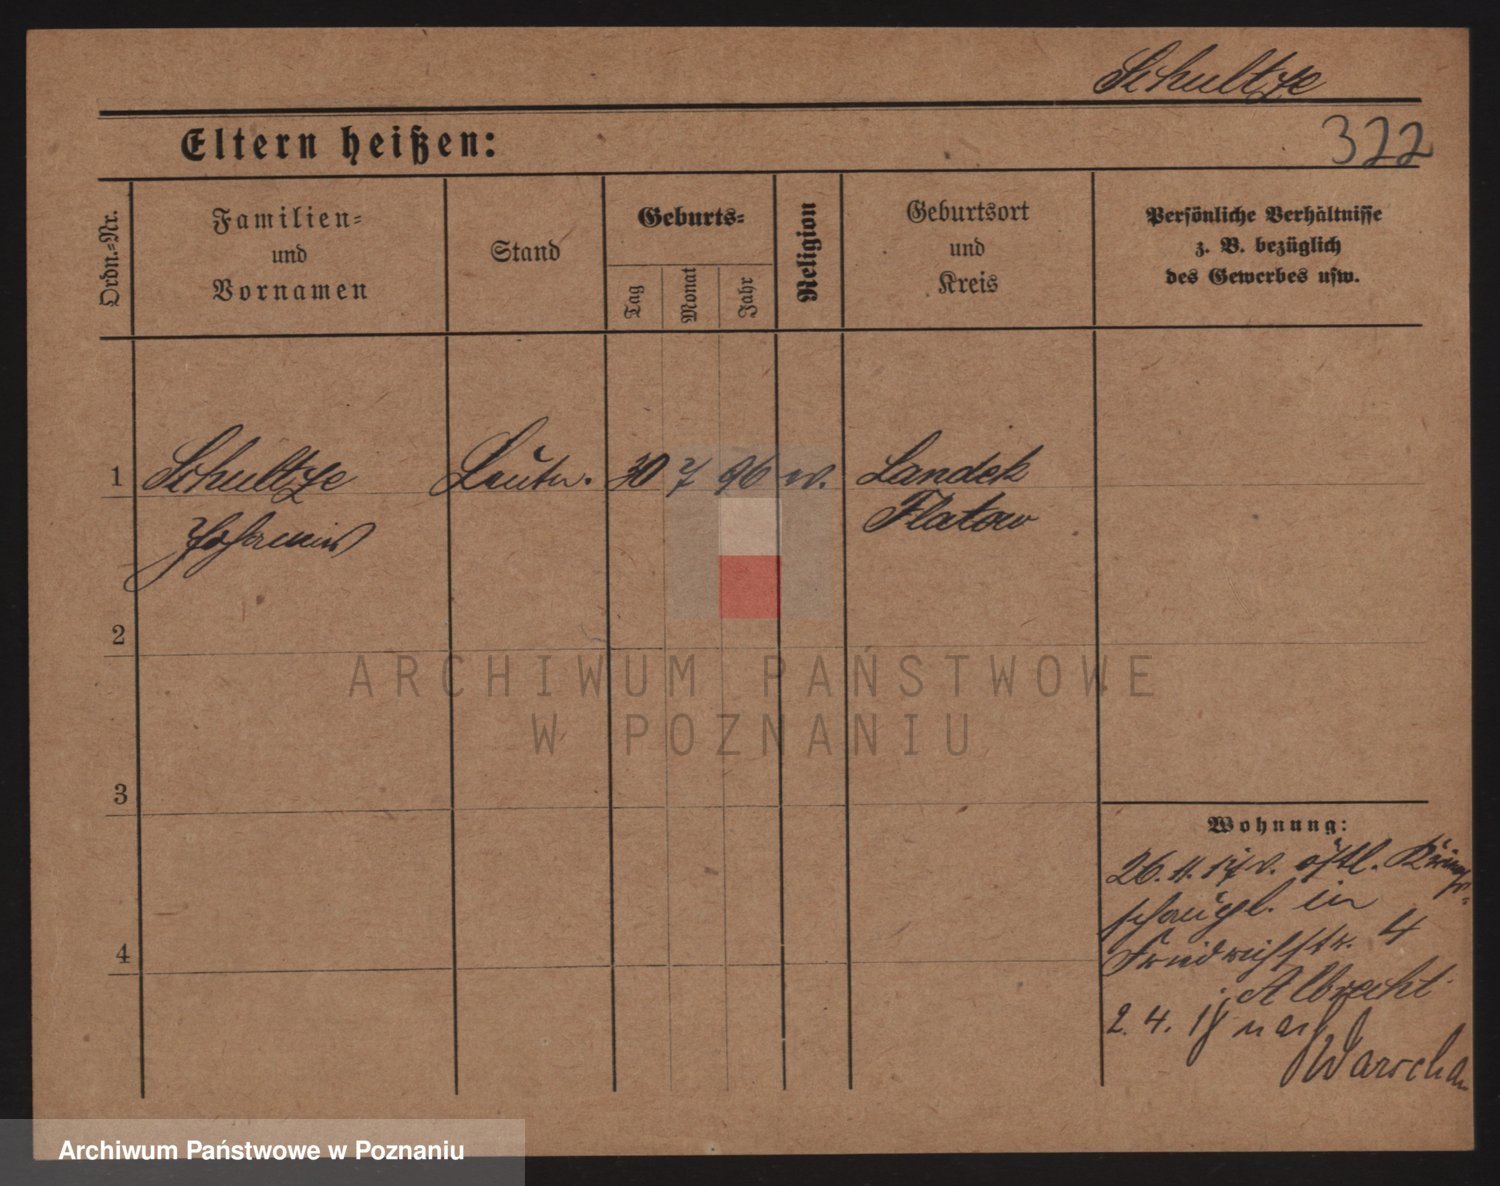 Schultze
Eltern heißen:
322
Ordn.-Nr.
Familien-
und
Vornamen
Stand
Geburts-
Tag
Monat
Jahr
Religion
Geburtsort
und
Kreis
Persönliche Verhältnisse
z. B. bezüglich
des Gewerbes usw.
1
Schultze
Johannes
Leutn.
30
7
96
ev.
Landek
Flatow
2
ARCHIWUM PAŃSTWOWE
W POZNANIU
3
Wohnung:
26. 11. 17 v. östl.
in
Friedrichstr. 4
Albrecht
2. 4. 18 nach
Warschau
4
Archiwum Państwowe w Poznaniu